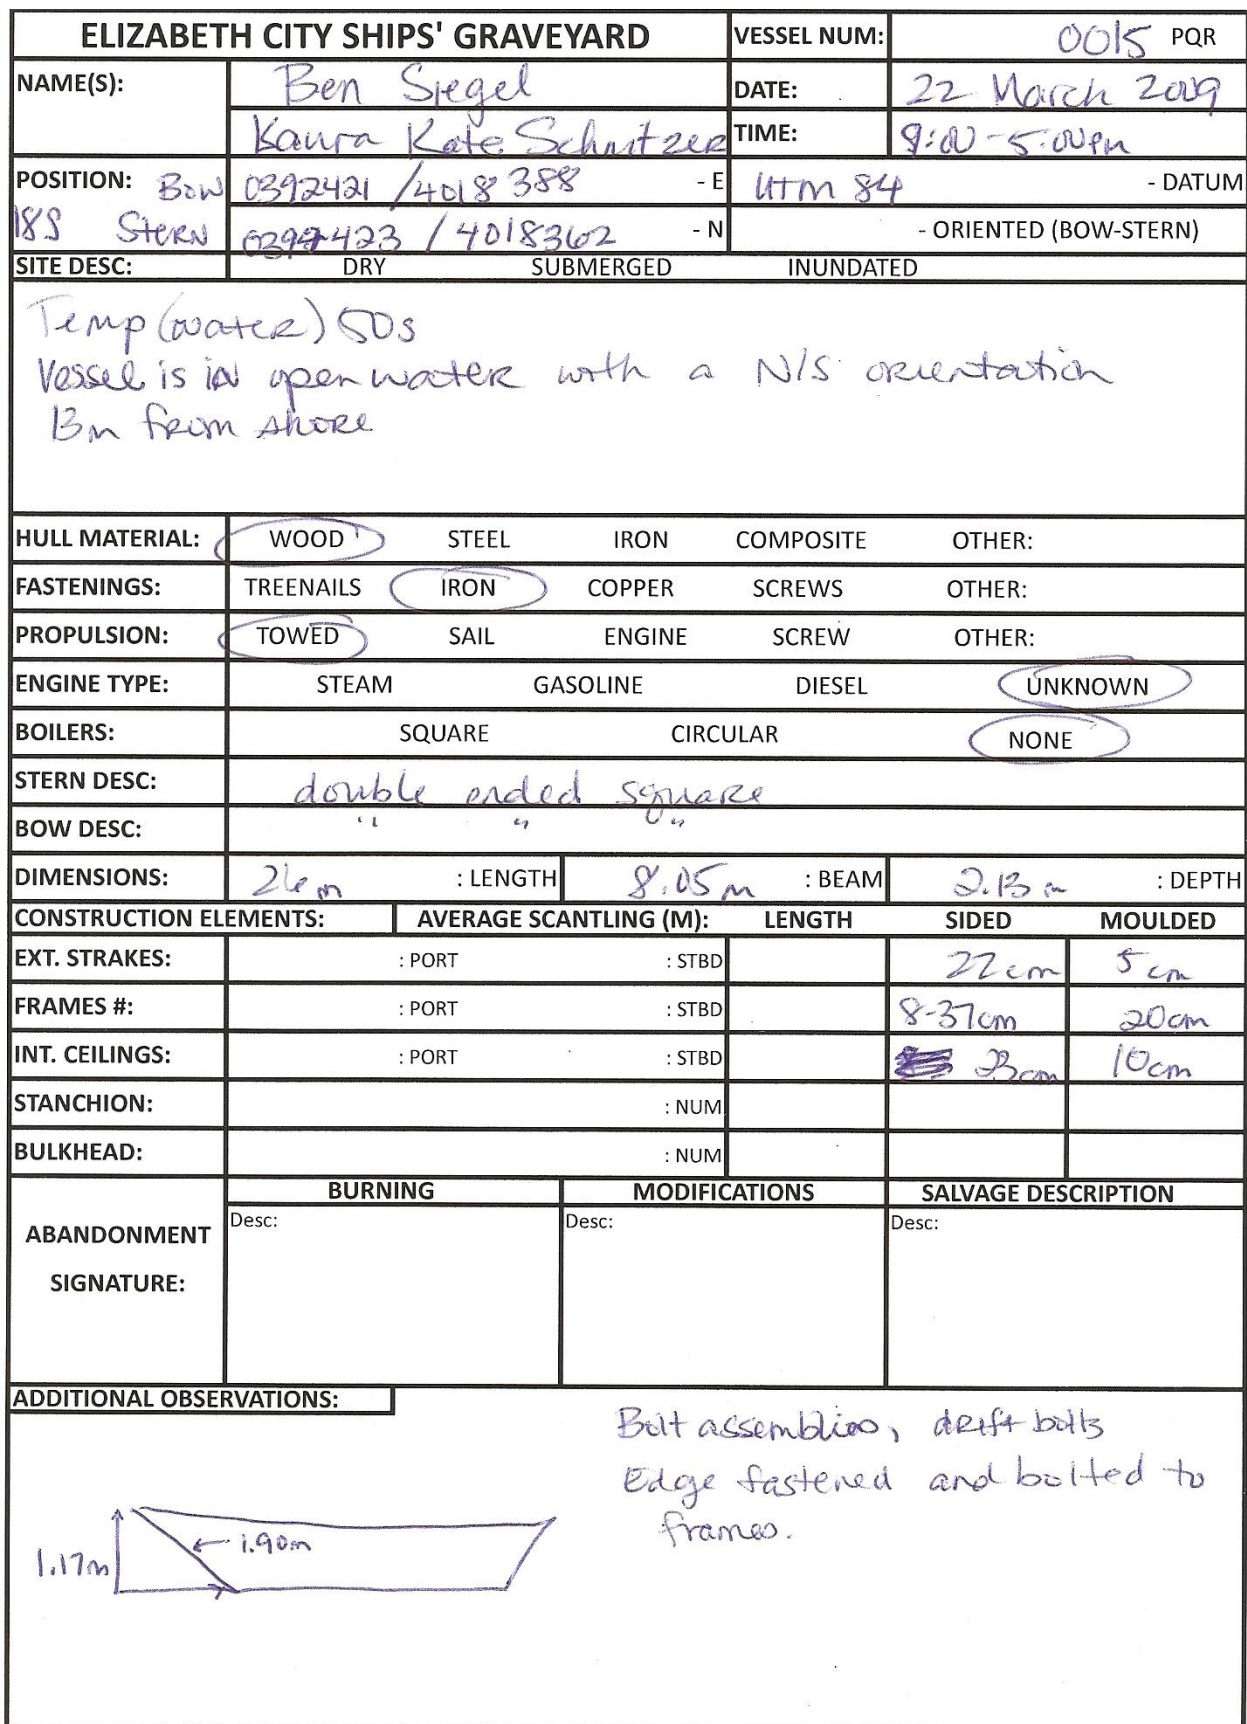 ELIZABETH CITY SHIPS' GRAVEYARD VESSEL NUM: 0015 PQR
NAME(S): Ben Siegel DATE: 22 March 2009
Kate Schnitzer TIME: 9:00-5:00pm
POSITION: Bow 0392421 /4018388 - E UTM 84 - DATUM
18S Stern 0392423 / 4018362 - N - ORIENTED (BOW-STERN)
SITE DESC: DRY SUBMERGED INUNDATED
Temp (water) 50s
Vessel is in open water with a N/S orientation
13m from shore
HULL MATERIAL: WOOD STEEL IRON COMPOSITE OTHER:
FASTENINGS: TREENAILS IRON COPPER SCREWS OTHER:
PROPULSION: TOWED SAIL ENGINE SCREW OTHER:
ENGINE TYPE: STEAM GASOLINE DIESEL UNKNOWN
BOILERS: SQUARE CIRCULAR NONE
STERN DESC: double ended square
BOW DESC: " " "
DIMENSIONS: 26m : LENGTH 8.05m : BEAM 2.13m : DEPTH
CONSTRUCTION ELEMENTS: AVERAGE SCANTLING (M): LENGTH SIDED MOULDED
EXT. STRAKES: : PORT : STBD 22cm 5cm
FRAMES #: : PORT : STBD 8-37cm 20cm
INT. CEILINGS: : PORT : STBD 23cm 10cm
STANCHION: : NUM
BULKHEAD: : NUM
ABANDONMENT SIGNATURE: BURNING MODIFICATIONS SALVAGE DESCRIPTION
Desc: Desc: Desc:
ADDITIONAL OBSERVATIONS:
Bolt assemblies, drift bolts
Edge fastened and bolted to
frames.
1.90m
1.17m